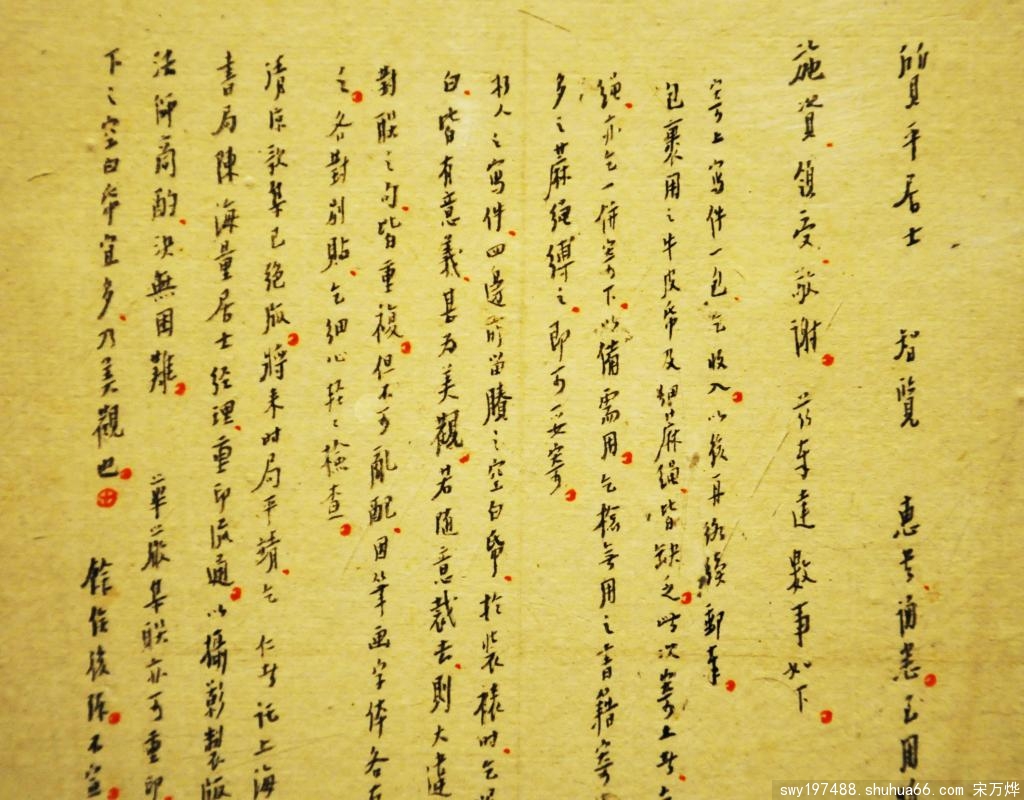 質平居士 智覽 惠書誦悉至用
施資領受敬謝 茲奉達數事如下
寄上寫件一包乞收入以後再絡續郵奉
包裹用之牛皮帋及細蔴繩皆缺乏此次寄上者
繩亦乞一併寄下以備需用乞檢無用之書籍寄
多之蔴繩縛之即可妥寄
朽人之寫件四邊所留賸之空白帋於裝裱時乞
白皆有意義甚为美觀若随意裁去則大違
對联之句皆重複但不可亂配因筆画字体各有
之各對別貼乞細心轻々檢查
清凉歌集已絕版將来时局平靖乞 仁者託上海
書局陳海量居士经理重印流通以攝影製版
法師商酌决無困難 華嚴集联亦可重印
下之空白帋宜多乃美觀也 餘俟後陳不宣
swy197488.shuhua66.com 宋万烨